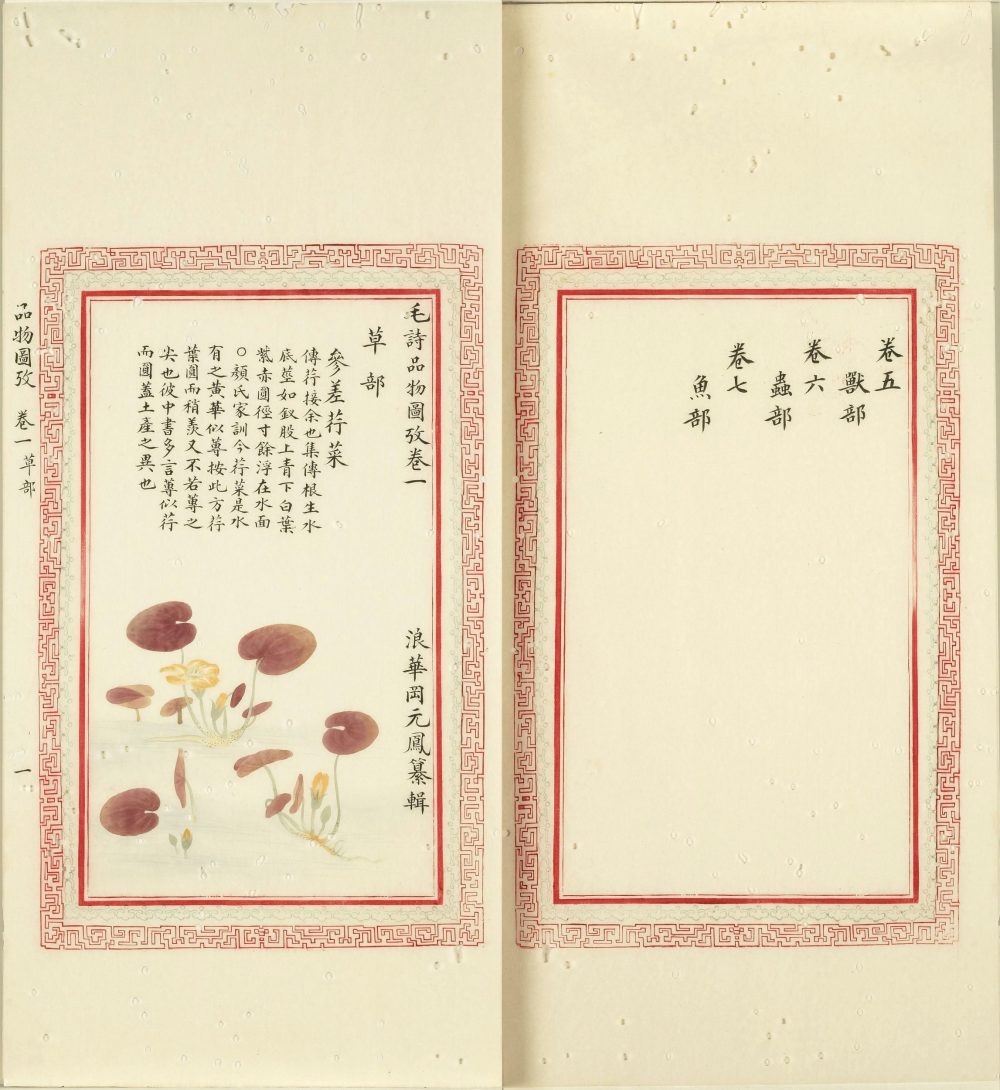 卷五
獸部
卷六
蟲部
卷七
魚部
毛詩品物圖攷卷一
浪華岡元鳳纂輯
草部
參差荇菜
傳荇接余也集傳根生水
底莖如釵股上青下白葉
紫赤圓徑寸餘浮在水面
○顏氏家訓今荇菜是水
有之黃華似蓴按此方荇
葉圓而稍羨又不若蓴之
尖也彼中書多言蓴似荇
而圓蓋土產之異也
品物圖攷 卷一 草部
一